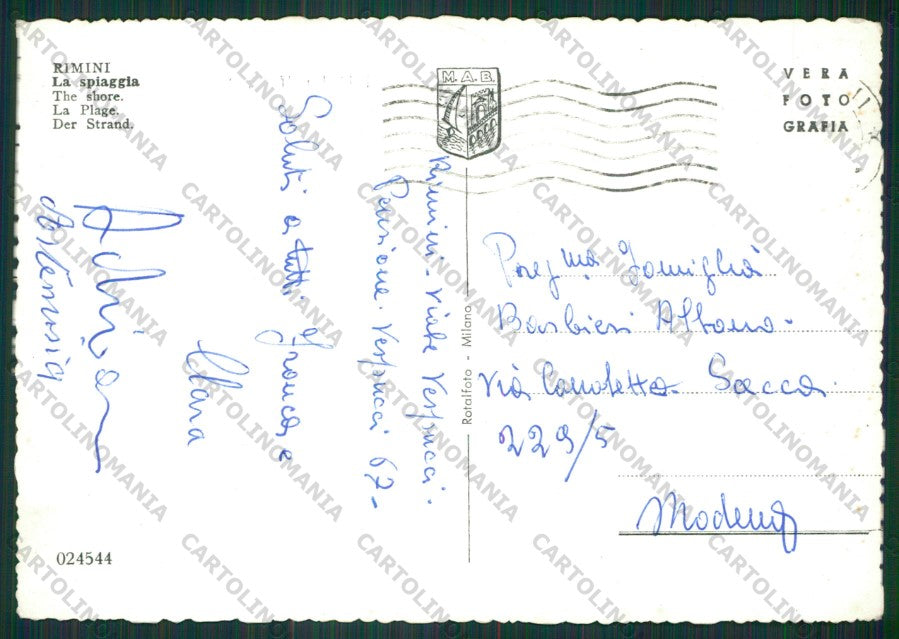 RIMINI
La spiaggia
The shore.
La Plage.
Der Strand.
M.A.B.
VERA
FOTO
GRAFIA
Rimini - Viale Vespucci.
Pensione. Vespucci 67-
Saluti a tutti Franca e
Clara
Adriana
Preg.ma Famiglia
Barbieri Albano.
Via Canaletto Sacca
229/5
Modena
Rotalfoto - Milano
024544
CARTOLINOMANIA